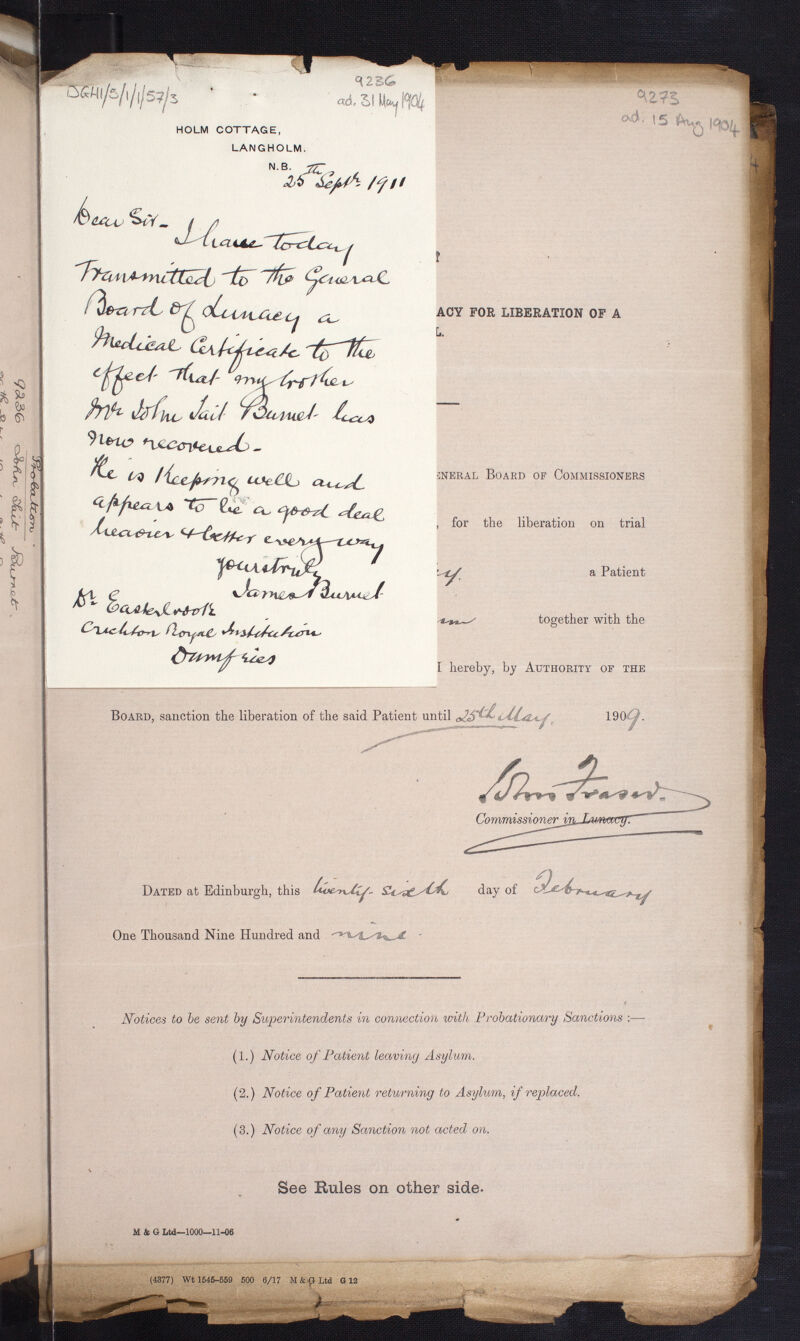 DGH1/5/1/1/57/3
9236
ad. 31 May 1904
HOLM COTTAGE,
LANGHOLM.
N.B.
25th Septr. 1911
Dear Sir-
I have today
Transmitted to the General
Board of Lunacy a
Medical Certificate to the
effect that my brother
Mr John Tait Burnet has
now recovered-
He is Keeping well and
appears to be a good deal
heavier & better every way
Yours truly
James Burnet
Dr Easterbrook
Crichton Royal Institution
Dumfries
9273
ad. 15 Aug 1904
ACY FOR LIBERATION OF A
L.
ENERAL BOARD OF COMMISSIONERS
, for the liberation on trial
a Patient
together with the
I hereby, by AUTHORITY OF THE
BOARD, sanction the liberation of the said Patient until 25th May, 1909.
John Fraser.
Commissioner in Lunacy.
DATED at Edinburgh, this twenty-sixth day of February
One Thousand Nine Hundred and nine -
Notices to be sent by Superintendents in connection with Probationary Sanctions :—
(1.) Notice of Patient leaving Asylum.
(2.) Notice of Patient returning to Asylum, if replaced.
(3.) Notice of any Sanction not acted on.
See Rules on other side.
M & G Ltd—1000—11-06
(4377) Wt 1545-559 500 6/17 M & G Ltd G 12
Probation.
9236 John Tait Burnet.